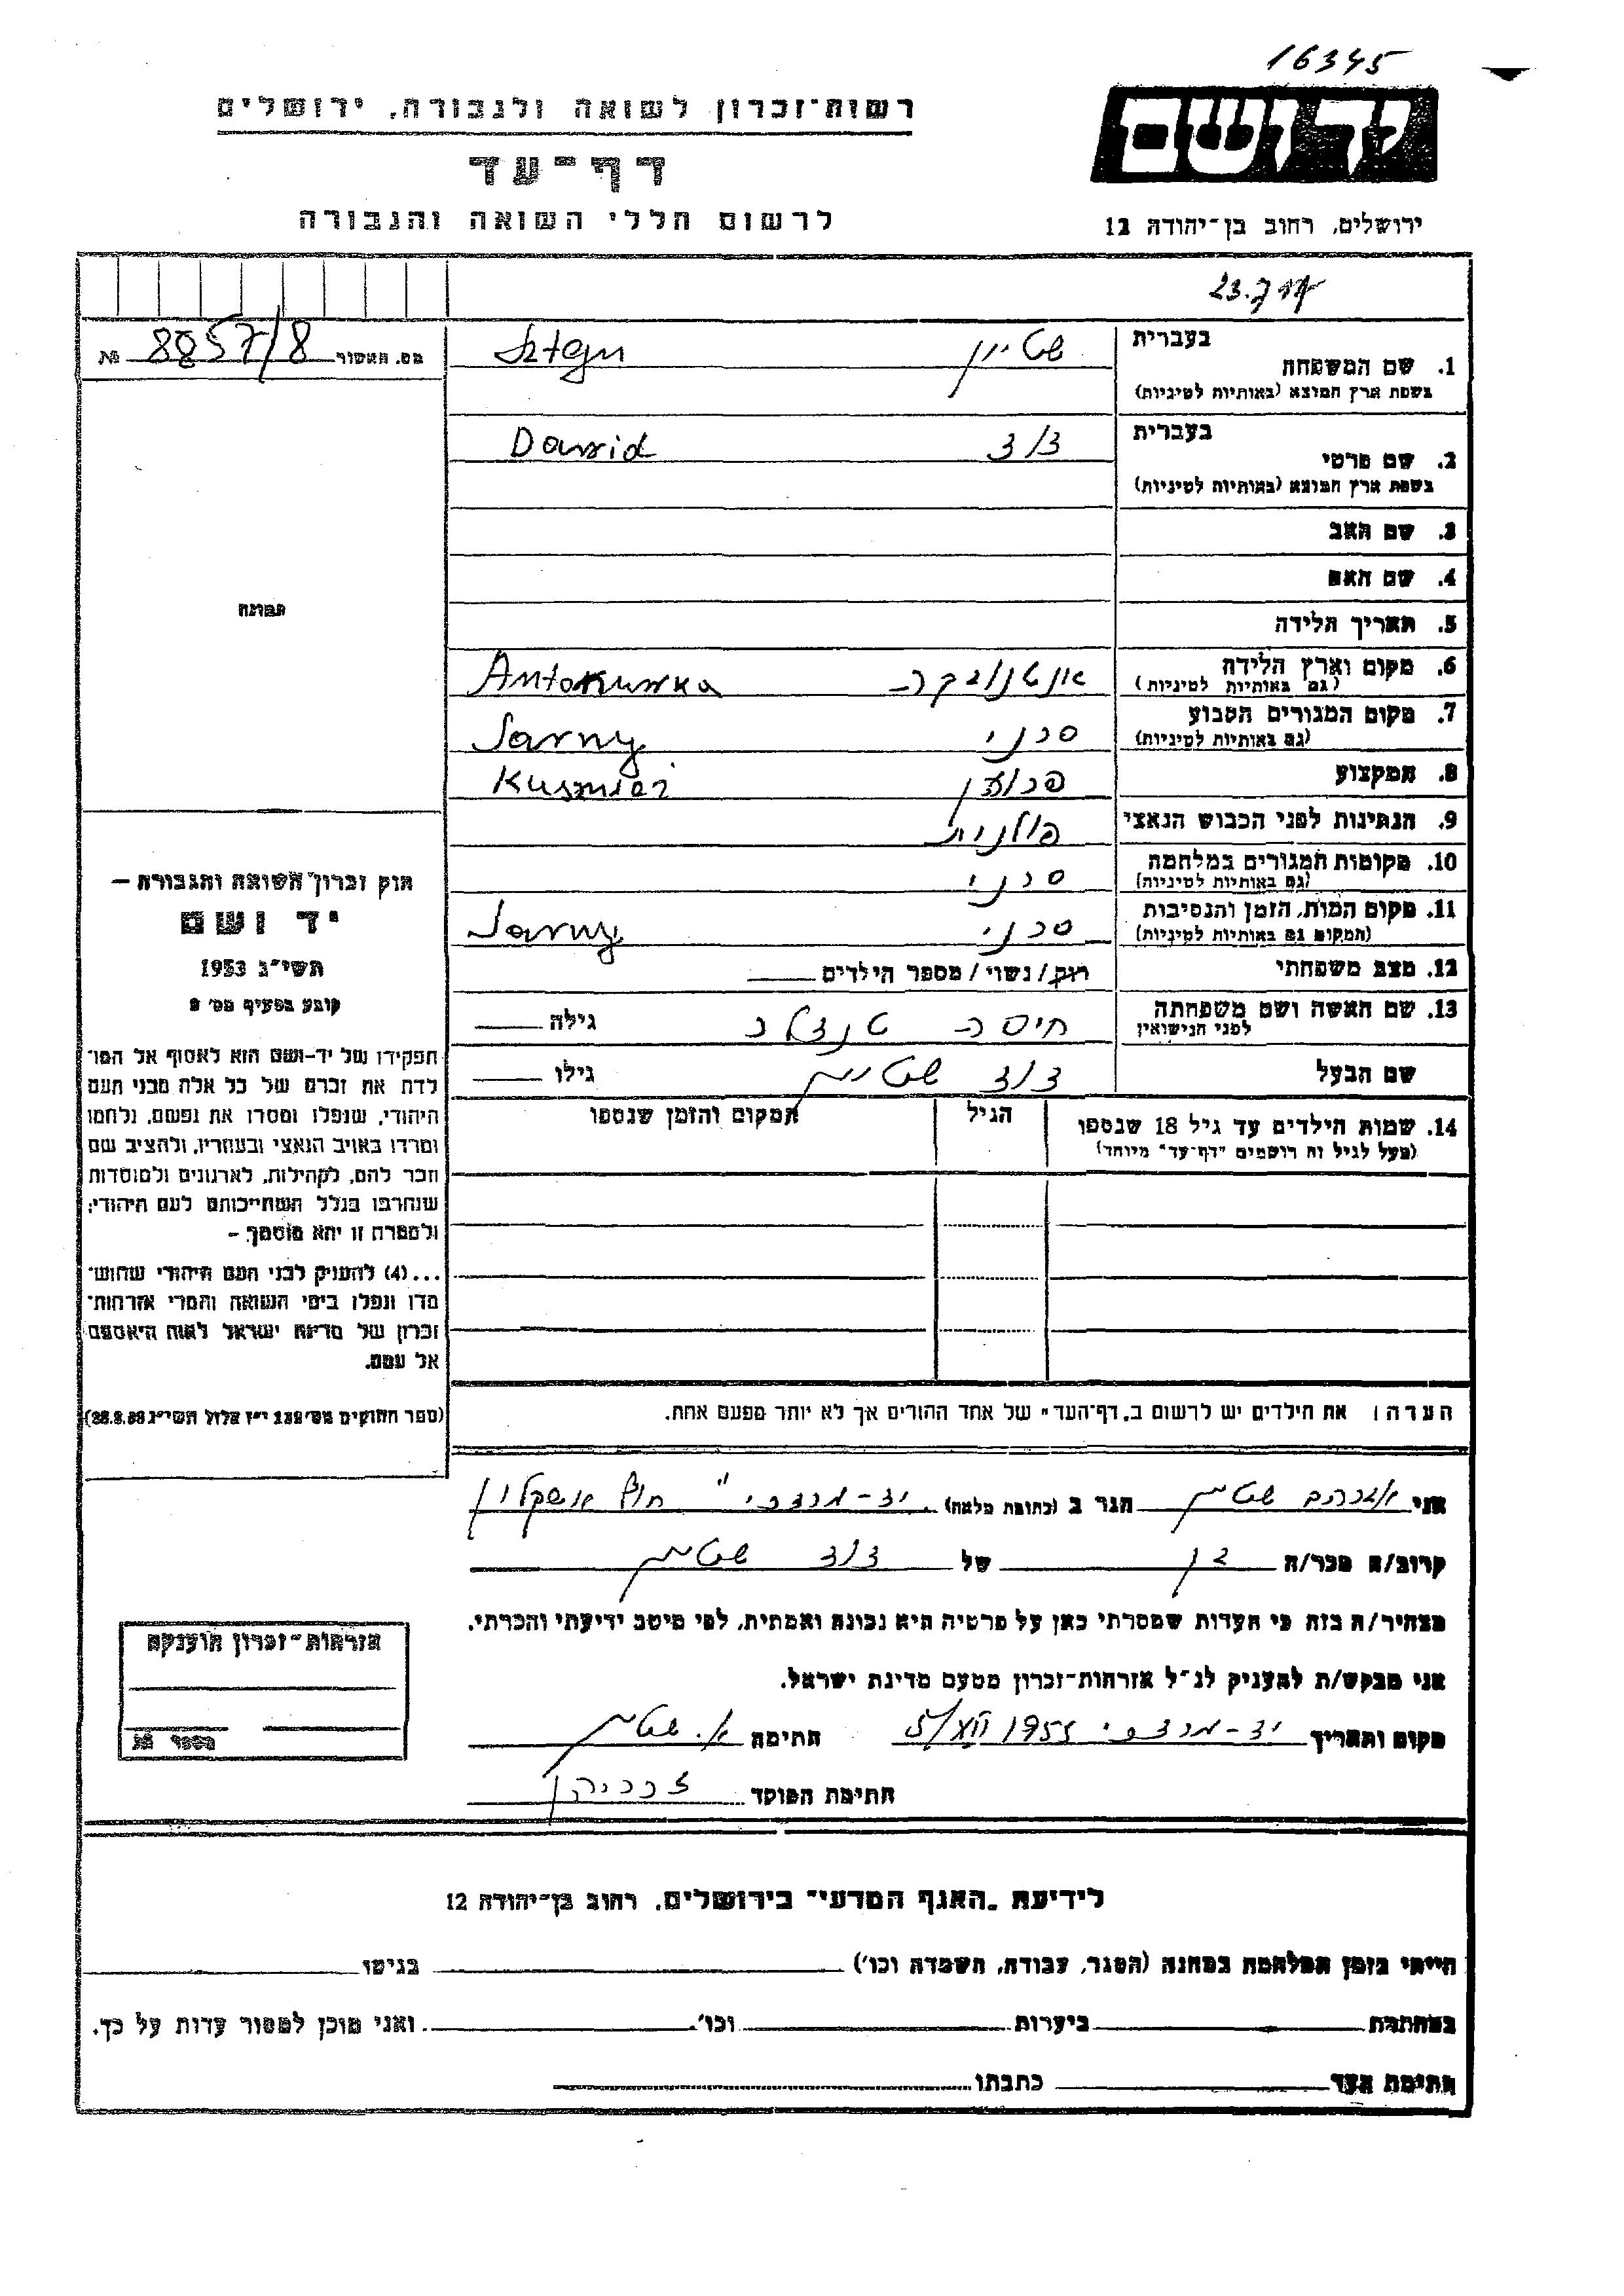 16345
רשות־זכרון לשואה ולגבורה, ירושלים
יד ושם
דף־עד
לרשום חללי השואה והגבורה
ירושלים, רחוב בן־יהודה 12
בעברית שטיין Sztejn
1. שם המשפחה
בשפת ארץ המוצא (באותיות לטיניות)
מס. האשור 8857/8 №
בעברית דוד Dawid
2. שם פרטי
בשפת ארץ המוצא (באותיות לטיניות)
3. שם האב
4. שם האם
5. תאריך הלידה
תמונה
6. מקום וארץ הלידה אנטונובקה Antonuwka
(גם באותיות לטיניות)
7. מקום המגורים הקבוע סרני Sarny
(גם באותיות לטיניות)
8. המקצוע פרוען Kusznież
9. הנתינות לפני הכבוש הנאצי פולנית
10. מקומות המגורים במלחמה סרני
(גם באותיות לטיניות)
11. מקום המות, הזמן והנסיבות סרני Sarny
(המקום גם באותיות לטיניות)
12. מצב משפחתי רווק/נשוי/מספר הילדים
13. שם האשה ושם משפחתה גילה
לפני הנישואין
שם הבעל דוד שטיין גילו
14. שמות הילדים עד גיל 18 שנספו הגיל המקום והזמן שנספו
(מעל לגיל זה רושמים "דף־עד" מיוחד)
חוק זכרון השואה והגבורה –
יד ושם
תשי"ג 1953
קובע בסעיף מס' 2
תפקידו של יד-ושם הוא לאסוף אל המו־
לדת את זכרם של כל אלה מבני העם
היהודי, שנפלו ומסרו את נפשם, נלחמו
ומרדו באויב הנאצי ובעוזריו, ולהציב שם
וזכר להם, לקהילות, לארגונים ולמוסדות
שנחרבו בגלל השתייכותם לעם היהודי;
ולמטרה זו יהא מוסמך –
...(4) להעניק לבני העם היהודי שהוש־
מדו ונפלו בימי השואה והמרי אזרחות־
זכרון של מדינת ישראל לאות היאספם
אל עמם.
(ספר החוקים מס' 132 י"ז אלול תשי"ג 28.8.53)
הערה: את הילדים יש לרשום ב"דף־העד" של אחד ההורים אך לא יותר מפעם אחת.
אני אברהם שטיין הגר ב (כתובת מלאה) יד-מרדכי" חוף אשקלון
קרוב/ה מכר/ה בן של דוד שטיין
מצהיר/ה בזה כי העדות שמסרתי כאן על פרטיה היא נכונה ואמתית, לפי מיטב ידיעתי והכרתי.
אני מבקש/ת להעניק לנ"ל אזרחות־זכרון מטעם מדינת ישראל.
מקום ותאריך יד-מרדכי 5/XII 1955 חתימה א. שטיין
חתימת הפוקד
אזרחות־זכרון הוענקה
מספר
לידיעת "האגף המדעי" בירושלים, רחוב בן־יהודה 12
הייתי בזמן המלחמה במחנה (הסגר, עבודה, השמדה וכו') בגיטו
במחתרת ביערות וכו' ואני מוכן למסור עדות על כך.
חתימת העד כתבתו